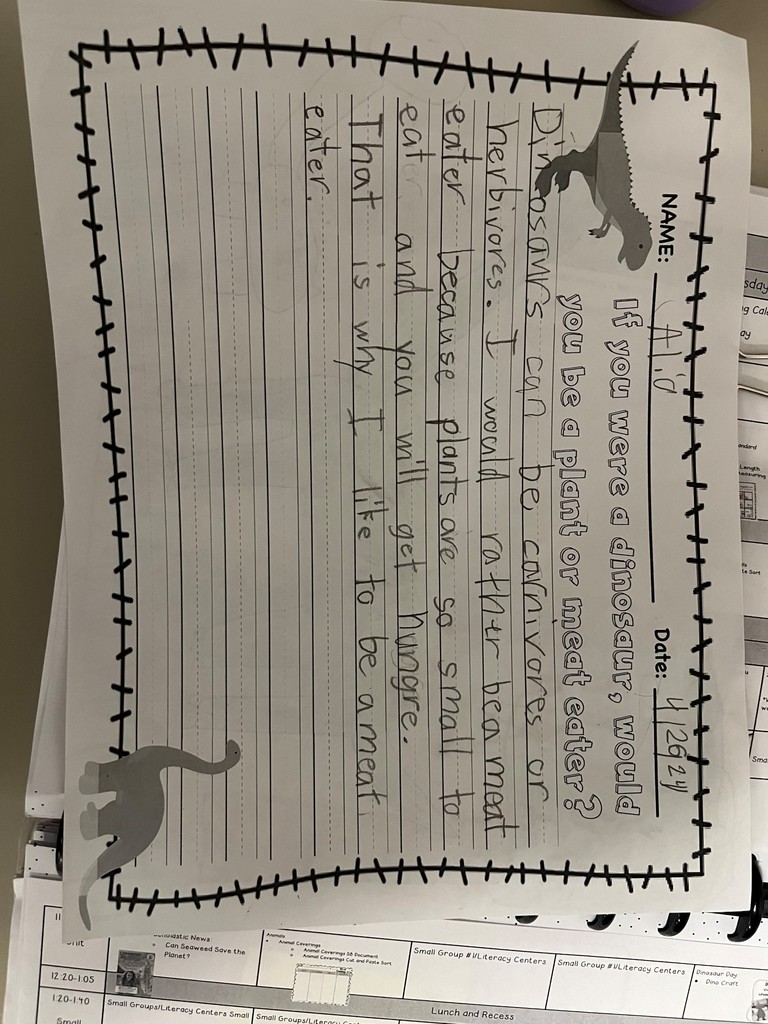 NAME: Alid
Date: 4/26/24
If you were a dinosaur, would
you be a plant or meat eater?
Dinosaurs can be carnivores or
herbivores. I would rathtr be a meat
eater because plants are so small to
eat and you will get hungre.
That is why I like to be a meat
eater.
sday
Scholastic News
Can Seaweed Save the
Planet?
Animals
Animal Coverings
Animal Coverings SB Document
Animal Coverings Cut and Paste Sort
Small Group #1/Literacy Centers
Small Group #1/Literacy Centers
Dinosaur Day
Dino Craft
12:20-1:05
Lunch and Recess
1:20-1:40
Small Groups/Literacy Centers
Small Groups/Literacy
Small